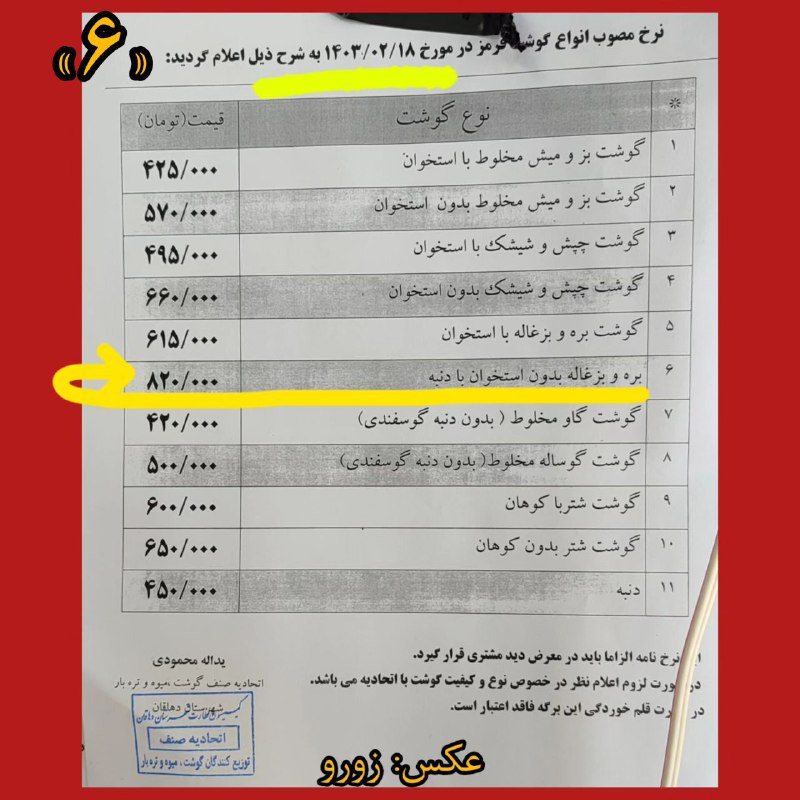 «۶»
نرخ مصوب انواع گوشت قرمز در مورخ ۱۴۰۳/۰۲/۱۸ به شرح ذیل اعلام گردید:
* نوع گوشت قیمت(تومان)
۱ گوشت بز و میش مخلوط با استخوان ۴۲۵/۰۰۰
۲ گوشت بز و میش مخلوط بدون استخوان ۵۷۰/۰۰۰
۳ گوشت چپش و شیشک با استخوان ۴۹۵/۰۰۰
۴ گوشت چپش و شیشک بدون استخوان ۶۶۰/۰۰۰
۵ گوشت بره و بزغاله با استخوان ۶۱۵/۰۰۰
۶ بره و بزغاله بدون استخوان با دنبه ۸۲۰/۰۰۰
۷ گوشت گاو مخلوط ( بدون دنبه گوسفندی) ۴۲۰/۰۰۰
۸ گوشت گوساله مخلوط( بدون دنبه گوسفندی) ۵۰۰/۰۰۰
۹ گوشت شتربا کوهان ۶۰۰/۰۰۰
۱۰ گوشت شتر بدون کوهان ۶۵۰/۰۰۰
۱۱ دنبه ۴۵۰/۰۰۰
نرخ نامه الزاما باید در معرض دید مشتری قرار گیرد.
در صورت لزوم اعلام نظر در خصوص نوع و کیفیت گوشت با اتحادیه می باشد.
در صورت قلم خوردگی این برگه فاقد اعتبار است.
یداله محمودی
اتحادیه صنف گوشت ،میوه و تره بار
شهرستان دهاقان
اتحادیه صنف
توزیع کنندگان گوشت ، میوه و تره بار
عکس: زورو